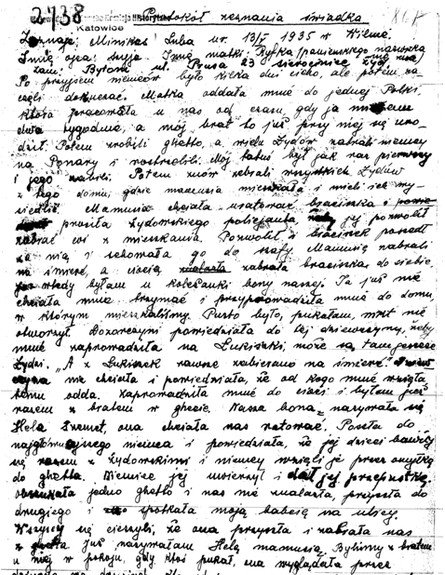 2738 Protokół zeznania świadka
Katowice
Zeznaje: Mimikes Luba ur. 13/I 1935 w Wilnie.
Imię ojca: Imię matki: Ryfka (panieńskiego nazwiska
zam. Bytom ul. Prusa 23 sierociniec
Po przyjściu niemców było kilka dni cicho, ale potem za-
częli dokuczać. Matka oddała mnie do jednej Polki,
która pracowała u nas od czasu, gdy ja miałam
dwa tygodnie, a mój brat to już przy niej się uro-
dził. Potem zrobili ghetto, a wielu Żydów zabrali niemcy
na Ponary i rozstrzelali. Mój tatuś był jak raz pierwszy
i jego zabrali. Potem znów zabrali wszystkich Żydów
z tego domu gdzie mamusia mieszkała i mieli ich wy-
siedlić. Mamusia chciała uratować braciszka i
prosiła żydowskiego policjanta żeby jej pozwolił
zabrać coś z mieszkania. Pozwolił i braciszek poszedł
za nią i schowała go do szafy. Mamusię zabrali
na śmierć, a ciocia zabrała braciszka do siebie,
ja wtedy byłam u koleżanki bony naszej. Ta już nie
chciała mnie trzymać i przyprowadziła mnie do domu,
w którym mieszkaliśmy. Pusto było, pukałam, nikt nie
otworzył. Dozorczyni powiedziała do tej dziewczyny, żeby
mnie zaprowadziła na Łukiszki, może są tam jeszcze
Żydzi. "A z Łukiszek zawsze zabierano na śmierć.
nie chciała i powiedziała, że od kogo mnie wzięła
temu odda. Zaprowadziła mnie do cioci i byłam już
razem z bratem w ghecie. Nasza bona nazywała się
Hela ona chciała nas ratować. Poszła do
najgłówniejszego niemca i powiedziała, że jej dzieci bawiły
się razem z żydowskimi i niemcy wzięli je przez omyłkę
do ghetta. Niemiec jej uwierzył i dał jej przepustkę,
obszukała jedno ghetto i nas nie znalazła, przyszła do
drugiego i spotkała moją babcię na ulicy.
Wszyscy się cieszyli, że ona przyszła i zabrała nas
z Już nazywałam Helę mamusią. Byliśmy z bratem
u niej w pokoju, gdy ktoś pukał, ona wyglądała przez